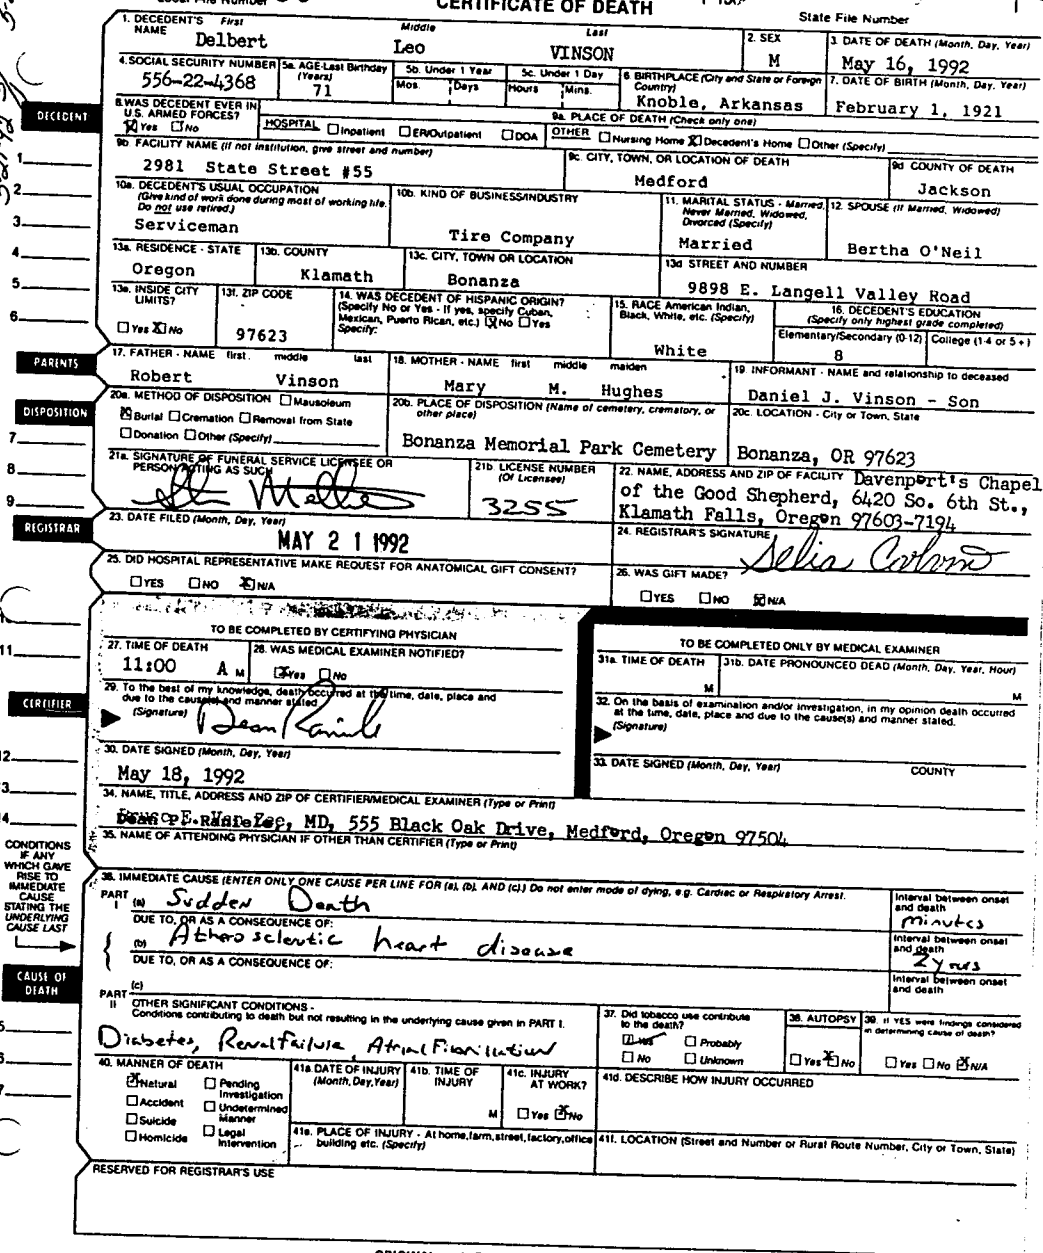 CERTIFICATE OF DEATH
State File Number
1. DECEDENT'S NAME First Middle Last
Delbert Leo VINSON
2. SEX
M
3. DATE OF DEATH (Month, Day, Year)
May 16, 1992
4. SOCIAL SECURITY NUMBER
556-22-4368
5a. AGE-Last Birthday (Years)
71
5b. Under 1 Year
Mos. Days
5c. Under 1 Day
Hours Mins.
6. BIRTHPLACE (City and State or Foreign Country)
Knoble, Arkansas
7. DATE OF BIRTH (Month, Day, Year)
February 1, 1921
DECEDENT
8. WAS DECEDENT EVER IN U.S. ARMED FORCES?
☒ Yes ☐ No
9a. PLACE OF DEATH (Check only one)
HOSPITAL ☐ Inpatient ☐ ER/Outpatient ☐ DOA OTHER ☐ Nursing Home ☒ Decedent's Home ☐ Other (Specify)
9b. FACILITY NAME (If not institution, give street and number)
2981 State Street #55
9c. CITY, TOWN, OR LOCATION OF DEATH
Medford
9d COUNTY OF DEATH
Jackson
10a. DECEDENT'S USUAL OCCUPATION
(Give kind of work done during most of working life. Do not use retired.)
Serviceman
10b. KIND OF BUSINESS/INDUSTRY
Tire Company
11. MARITAL STATUS - Married, Never Married, Widowed, Divorced (Specify)
Married
12. SPOUSE (If Married, Widowed)
Bertha O'Neil
13a. RESIDENCE - STATE
Oregon
13b. COUNTY
Klamath
13c. CITY, TOWN OR LOCATION
Bonanza
13d STREET AND NUMBER
9898 E. Langell Valley Road
13e. INSIDE CITY LIMITS?
☐ Yes ☒ No
13f. ZIP CODE
97623
14. WAS DECEDENT OF HISPANIC ORIGIN?
(Specify No or Yes - If yes, specify Cuban, Mexican, Puerto Rican, etc.) ☒ No ☐ Yes
Specify:
15. RACE American Indian, Black, White, etc. (Specify)
White
16. DECEDENT'S EDUCATION
(Specify only highest grade completed)
Elementary/Secondary (0-12) College (1-4 or 5+)
8
PARENTS
17. FATHER - NAME first middle last
Robert Vinson
18. MOTHER - NAME first middle maiden
Mary M. Hughes
19. INFORMANT - NAME and relationship to deceased
Daniel J. Vinson - Son
DISPOSITION
20a. METHOD OF DISPOSITION ☐ Mausoleum
☒ Burial ☐ Cremation ☐ Removal from State
☐ Donation ☐ Other (Specify)
20b. PLACE OF DISPOSITION (Name of cemetery, crematory, or other place)
Bonanza Memorial Park Cemetery
20c. LOCATION - City or Town, State
Bonanza, OR 97623
21a. SIGNATURE OF FUNERAL SERVICE LICENSEE OR PERSON ACTING AS SUCH
21b LICENSE NUMBER (Of Licensee)
3255
22. NAME, ADDRESS AND ZIP OF FACILITY Davenport's Chapel
of the Good Shepherd, 6420 So. 6th St.,
Klamath Falls, Oregon 97603-7194
REGISTRAR
23. DATE FILED (Month, Day, Year)
MAY 21 1992
24. REGISTRAR'S SIGNATURE
25. DID HOSPITAL REPRESENTATIVE MAKE REQUEST FOR ANATOMICAL GIFT CONSENT?
☐ YES ☐ NO ☒ N/A
26. WAS GIFT MADE?
☐ YES ☐ NO ☒ N/A
TO BE COMPLETED BY CERTIFYING PHYSICIAN
27. TIME OF DEATH
11:00 A M
28. WAS MEDICAL EXAMINER NOTIFIED?
☒ Yes ☐ No
CERTIFIER
29. To the best of my knowledge, death occurred at the time, date, place and
due to the cause(s) and manner stated
(Signature)
30. DATE SIGNED (Month, Day, Year)
May 18, 1992
TO BE COMPLETED ONLY BY MEDICAL EXAMINER
31a. TIME OF DEATH
M
31b. DATE PRONOUNCED DEAD (Month, Day, Year, Hour)
M
32. On the basis of examination and/or investigation, in my opinion death occurred
at the time, date, place and due to the cause(s) and manner stated.
(Signature)
33. DATE SIGNED (Month, Day, Year) COUNTY
34. NAME, TITLE, ADDRESS AND ZIP OF CERTIFIER/MEDICAL EXAMINER (Type or Print)
MD, 555 Black Oak Drive, Medford, Oregon 97504
35. NAME OF ATTENDING PHYSICIAN IF OTHER THAN CERTIFIER (Type or Print)
CONDITIONS
IF ANY
WHICH GAVE
RISE TO
IMMEDIATE
CAUSE
STATING THE
UNDERLYING
CAUSE LAST
CAUSE OF DEATH
36. IMMEDIATE CAUSE (ENTER ONLY ONE CAUSE PER LINE FOR (a), (b), AND (c).) Do not enter mode of dying, e.g. Cardiac or Respiratory Arrest.
PART I (a) Sudden Death
Interval between onset and death
minutes
DUE TO, OR AS A CONSEQUENCE OF:
(b) Atherosclerotic heart disease
Interval between onset and death
2 years
DUE TO, OR AS A CONSEQUENCE OF:
(c)
Interval between onset and death
PART II OTHER SIGNIFICANT CONDITIONS -
Conditions contributing to death but not resulting in the underlying cause given in PART I.
Diabetes, Renal Failure, Atrial Fibrillation
37. Did tobacco use contribute to the death?
☒ Yes ☐ Probably
☐ No ☐ Unknown
38. AUTOPSY
☐ Yes ☒ No
39. If YES were findings considered in determining cause of death?
☐ Yes ☐ No ☒ N/A
40. MANNER OF DEATH
☒ Natural ☐ Pending Investigation
☐ Accident ☐ Undetermined Manner
☐ Suicide
☐ Homicide ☐ Legal Intervention
41a. DATE OF INJURY (Month, Day, Year)
41b. TIME OF INJURY
M
41c. INJURY AT WORK?
☐ Yes ☒ No
41d. DESCRIBE HOW INJURY OCCURRED
41e. PLACE OF INJURY - At home, farm, street, factory, office building etc. (Specify)
41f. LOCATION (Street and Number or Rural Route Number, City or Town, State)
RESERVED FOR REGISTRAR'S USE